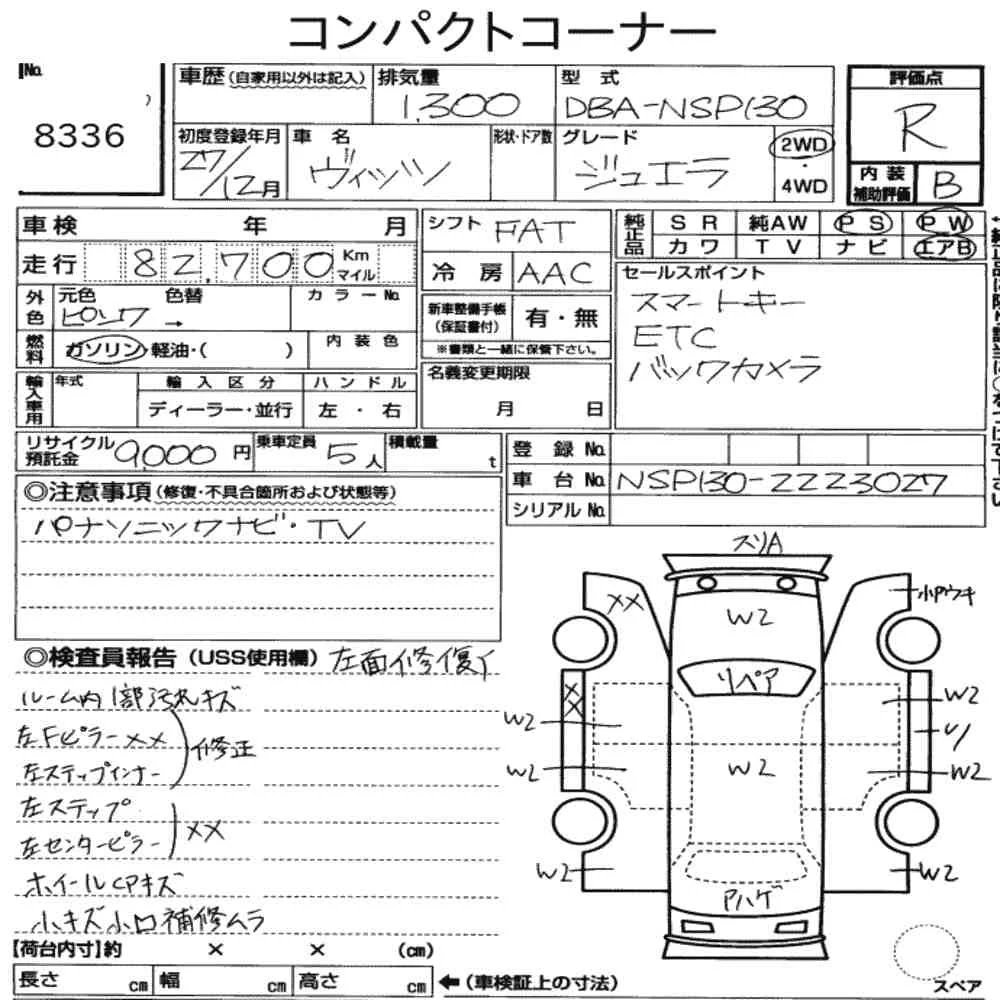 コンパクトコーナー
No.
8336
車歴(自家用以外は記入)
排気量
1,300
型式
DBA-NSP130
評価点
R
初度登録年月
27/12月
車名
ヴィッツ
形状・ドア数
グレード
ジュエラ
2WD
・
4WD
内装
補助評価
B
車検 年 月
走行 82,700 Km
マイル
外色
元色 色替
ピンク →
カラーNo.
燃料
ガソリン・軽油・( )
内装色
輸入車用
年式
輸入区分
ディーラー・並行
ハンドル
左・右
シフト FAT
冷房 AAC
新車整備手帳
(保証書付)
有・無
※書類と一緒に保管下さい。
名義変更期限
月 日
純正品
SR 純AW PS PW
カワ TV ナビ エアB
セールスポイント
スマートキー
ETC
バックカメラ
リサイクル
預託金 9,000円
乗車定員 5人
積載量 t
登録No.
車台No. NSP130-2223027
シリアルNo.
◎注意事項(修復・不具合箇所および状態等)
パナソニックナビ・TV
◎検査員報告(USS使用欄) 左面修復イ
ルーム内1部汚れキズ
左Fピラーxx
左ステップインナー
修正
左ステップ
左センターピラー
xx
ホイールCPキズ
小キズ小凹補修ムラ
スリA
xx
W2
小Pウキ
リペア
xx
W2
W2
W2
W2
W2
W2
W2
アハゲ
【荷台内寸】約 × × (cm)
長さ cm 幅 cm 高さ cm ←(車検証上の寸法)
スペア